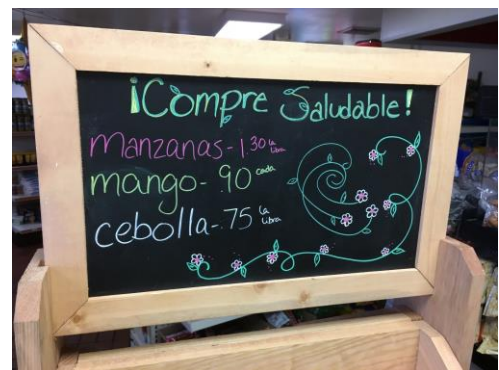 ¡Compre Saludable!
manzanas-1.30 la libra
mango-.90 cada
cebolla-.75 la libra